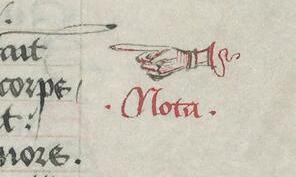 ait
corpe
t:
more.
. Nota .